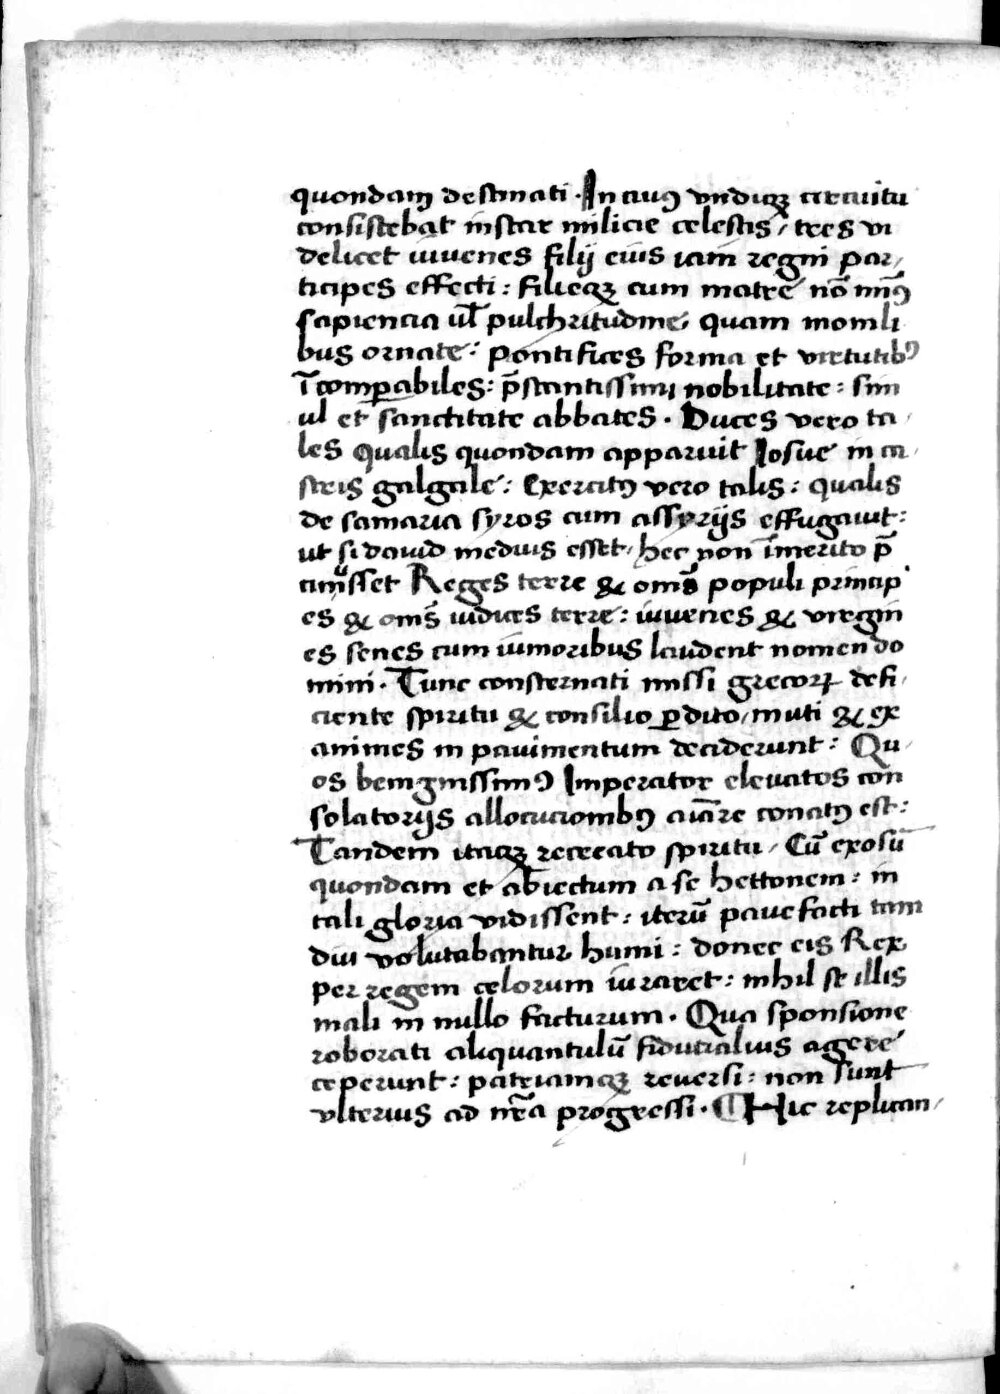 quondam destinati · In cuiꝰ vndiqꝫ circuitu
consistebat instar milicie celestis / tres vi
delicet iuuenes filij eius iam regni par/
ticipes effecti : filieqꝫ cum matre nō minꝰ
sapiencia ul̄ pulchritudine, quam monili
bus ornate : pontifices forma et virtutibꝰ
īcomꝑabiles : p̄stantissimi nobilitate : sim
ul et sanctitate abbates · Duces vero ta/
les qualis quondam apparuit Iosue in ca/
stris galgale : Exercitꝰ vero talis : qualis
de samaria syros cum assyrijs effugauit :
ut si dauid medius esset / hec non īmerito p̄
cinuisset Reges terre & omēs populi princip
es & omēs iudices terre : iuuenes & virgin
es senes cum iunioribus laudent nomen do
mini · Tunc consternati missi grecoꝝ defi/
ciente spiritu & consilio ꝑdito / muti & ex
animes in pauimentum deciderunt : Qu/
os benignissimꝰ Imperator eleuatos con
solatorijs allocucionibꝰ aīare conatꝰ est :
Tandem itaqꝫ recreato spiritu / Cū exosū
quondam et abiectum a se hettonem : in
tali gloria vidissent : iterū pauefacti tam
diu volutabantur humi : donec eis Rex
per regem celorum iuraret : nihil se illis
mali in nullo facturum · Qua sponsione
roborati aliquantulū fiducialius agere
ceperunt : pateiamqꝫ reuersi : non sunt
vlterius ad nr̄a progressi · ¶ Hic replican/